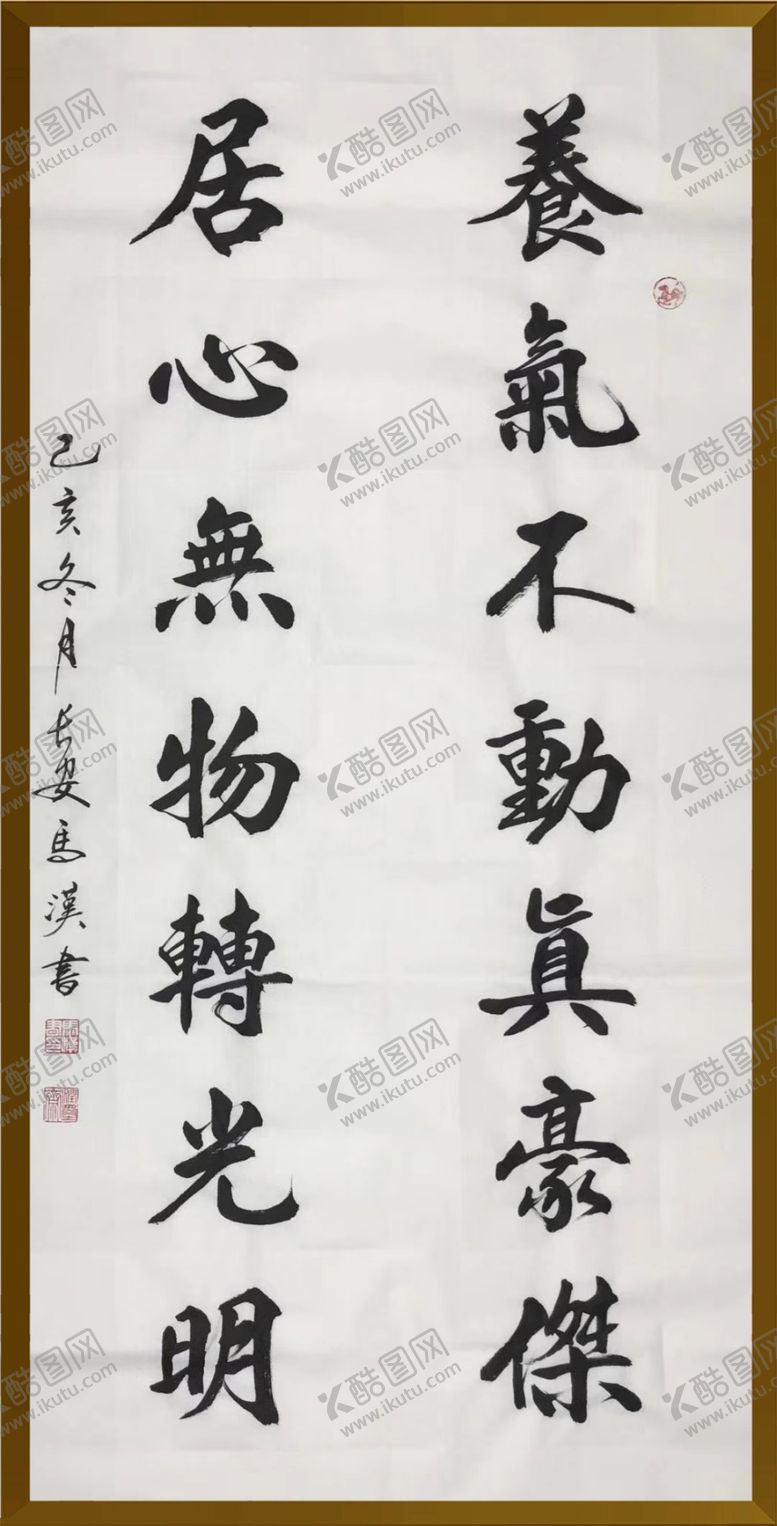 養氣不動真豪傑
居心無物轉光明
己亥冬月長安馬漢書
酷图网
www.ikutu.com